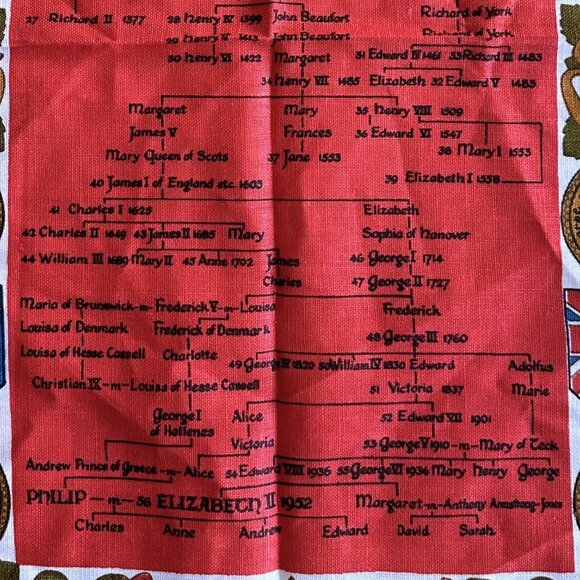 27 Richard II 1377 28 Henry IV 1399 John Beaufort Richard of York
29 Henry V 1413 John Beaufort Richard of York
30 Henry VI 1422 Margaret 31 Edward IV 1461 33 Richard III 1483
34 Henry VII 1485 Elizabeth 32 Edward V 1483
Margaret Mary 35 Henry VIII 1509
James V Frances 36 Edward VI 1547
Mary Queen of Scots 37 Jane 1553 38 Mary I 1553
40 James I of England etc. 1603 39 Elizabeth I 1558
41 Charles I 1625 Elizabeth
42 Charles II 1649 43 James II 1685 Mary Sophia of Hanover
44 William III 1689 Mary II 45 Anne 1702 James 46 George I 1714
Charles 47 George II 1727
Maria of Brunswick-m-Frederick V-m-Louisa Frederick
Louisa of Denmark Frederick of Denmark 48 George III 1760
Louisa of Hesse Cassell Charlotte 49 George IV 1820 50 William IV 1830 Edward Adolfus
Christian IX-m-Louisa of Hesse Cassell 51 Victoria 1837 Marie
George I of Hellenes Alice 52 Edward VII 1901
Victoria 53 George V 1910-m-Mary of Teck
Andrew Prince of Greece-m-Alice 54 Edward VIII 1936 55 George VI 1936 Mary Henry George
PHILIP-m-56 ELIZABETH II 1952 Margaret-m-Anthony Armstrong-Jones
Charles Anne Andrew Edward David Sarah